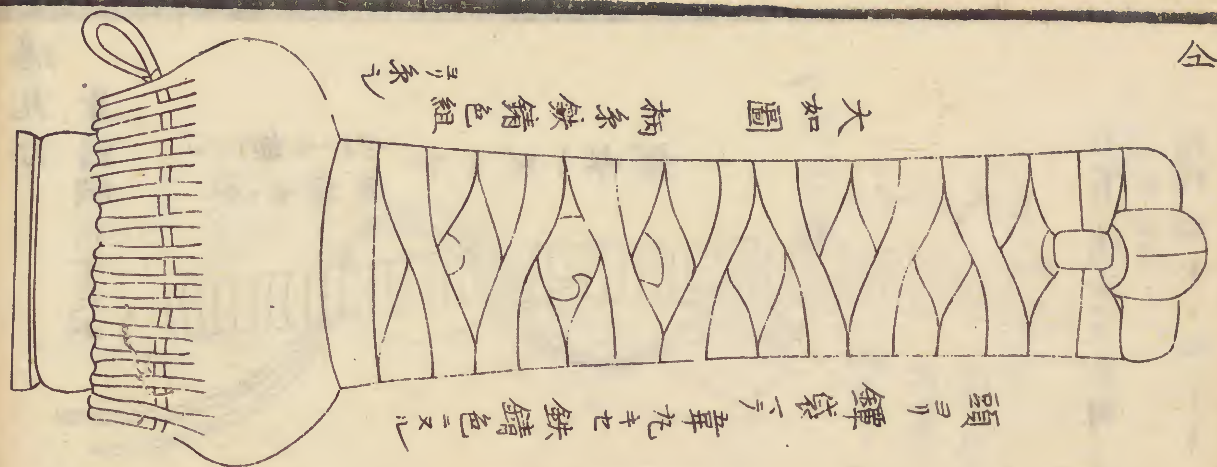 頭ヨリ鐔袋マテ韋丸キセ鉄鏥色ニヌル
大如圖　柄糸鉄鏥色組
ヨリ糸也